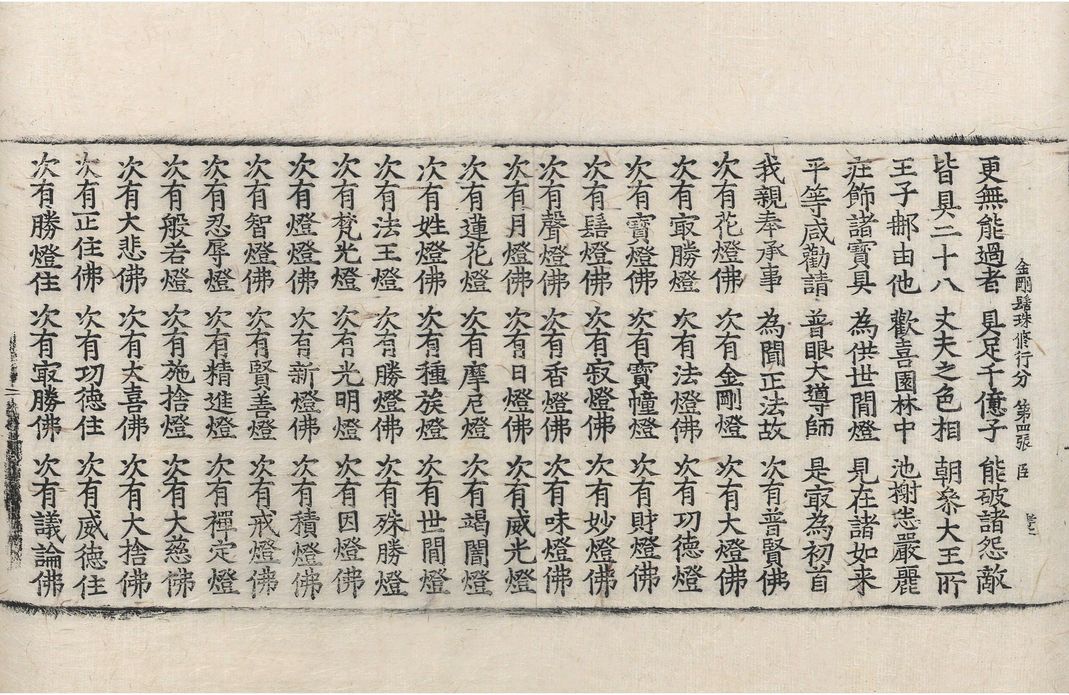 金剛髻珠修行分 第四張 臣
更無能過者 見足千億子 能破諸怨敵
皆具二十八 丈夫之色相 朝叅大王所
王子郍由他 歡喜園林中 池榭悉嚴麗
庄飾諸寶具 為供世間燈 見在諸如来
平等咸勸請 普眼大導師 是㝡為初首
我親奉承事 為聞正法故 次有普賢佛
次有花燈佛 次有金剛燈 次有大燈佛
次有㝡勝燈 次有法燈佛 次有功德燈
次有寶燈佛 次有寶幢燈 次有財燈佛
次有髻燈佛 次有寂燈佛 次有妙燈佛
次有聲燈佛 次有香燈佛 次有味燈佛
次有月燈佛 次有日燈佛 次有威光燈
次有蓮花燈 次有摩尼燈 次有竭闇燈
次有姓燈佛 次有種族燈 次有世間燈
次有法王燈 次有勝燈佛 次有殊勝燈
次有梵光燈 次有光明燈 次有因燈佛
次有燈燈佛 次有新燈佛 次有積燈佛
次有智燈佛 次有賢善燈 次有戒燈佛
次有忍辱燈 次有精進燈 次有禪定燈
次有般若燈 次有施捨燈 次有大慈佛
次有大悲佛 次有大喜佛 次有大捨佛
次有正住佛 次有功德住 次有威德住
次有勝燈住 次有㝡勝佛 次有議論佛